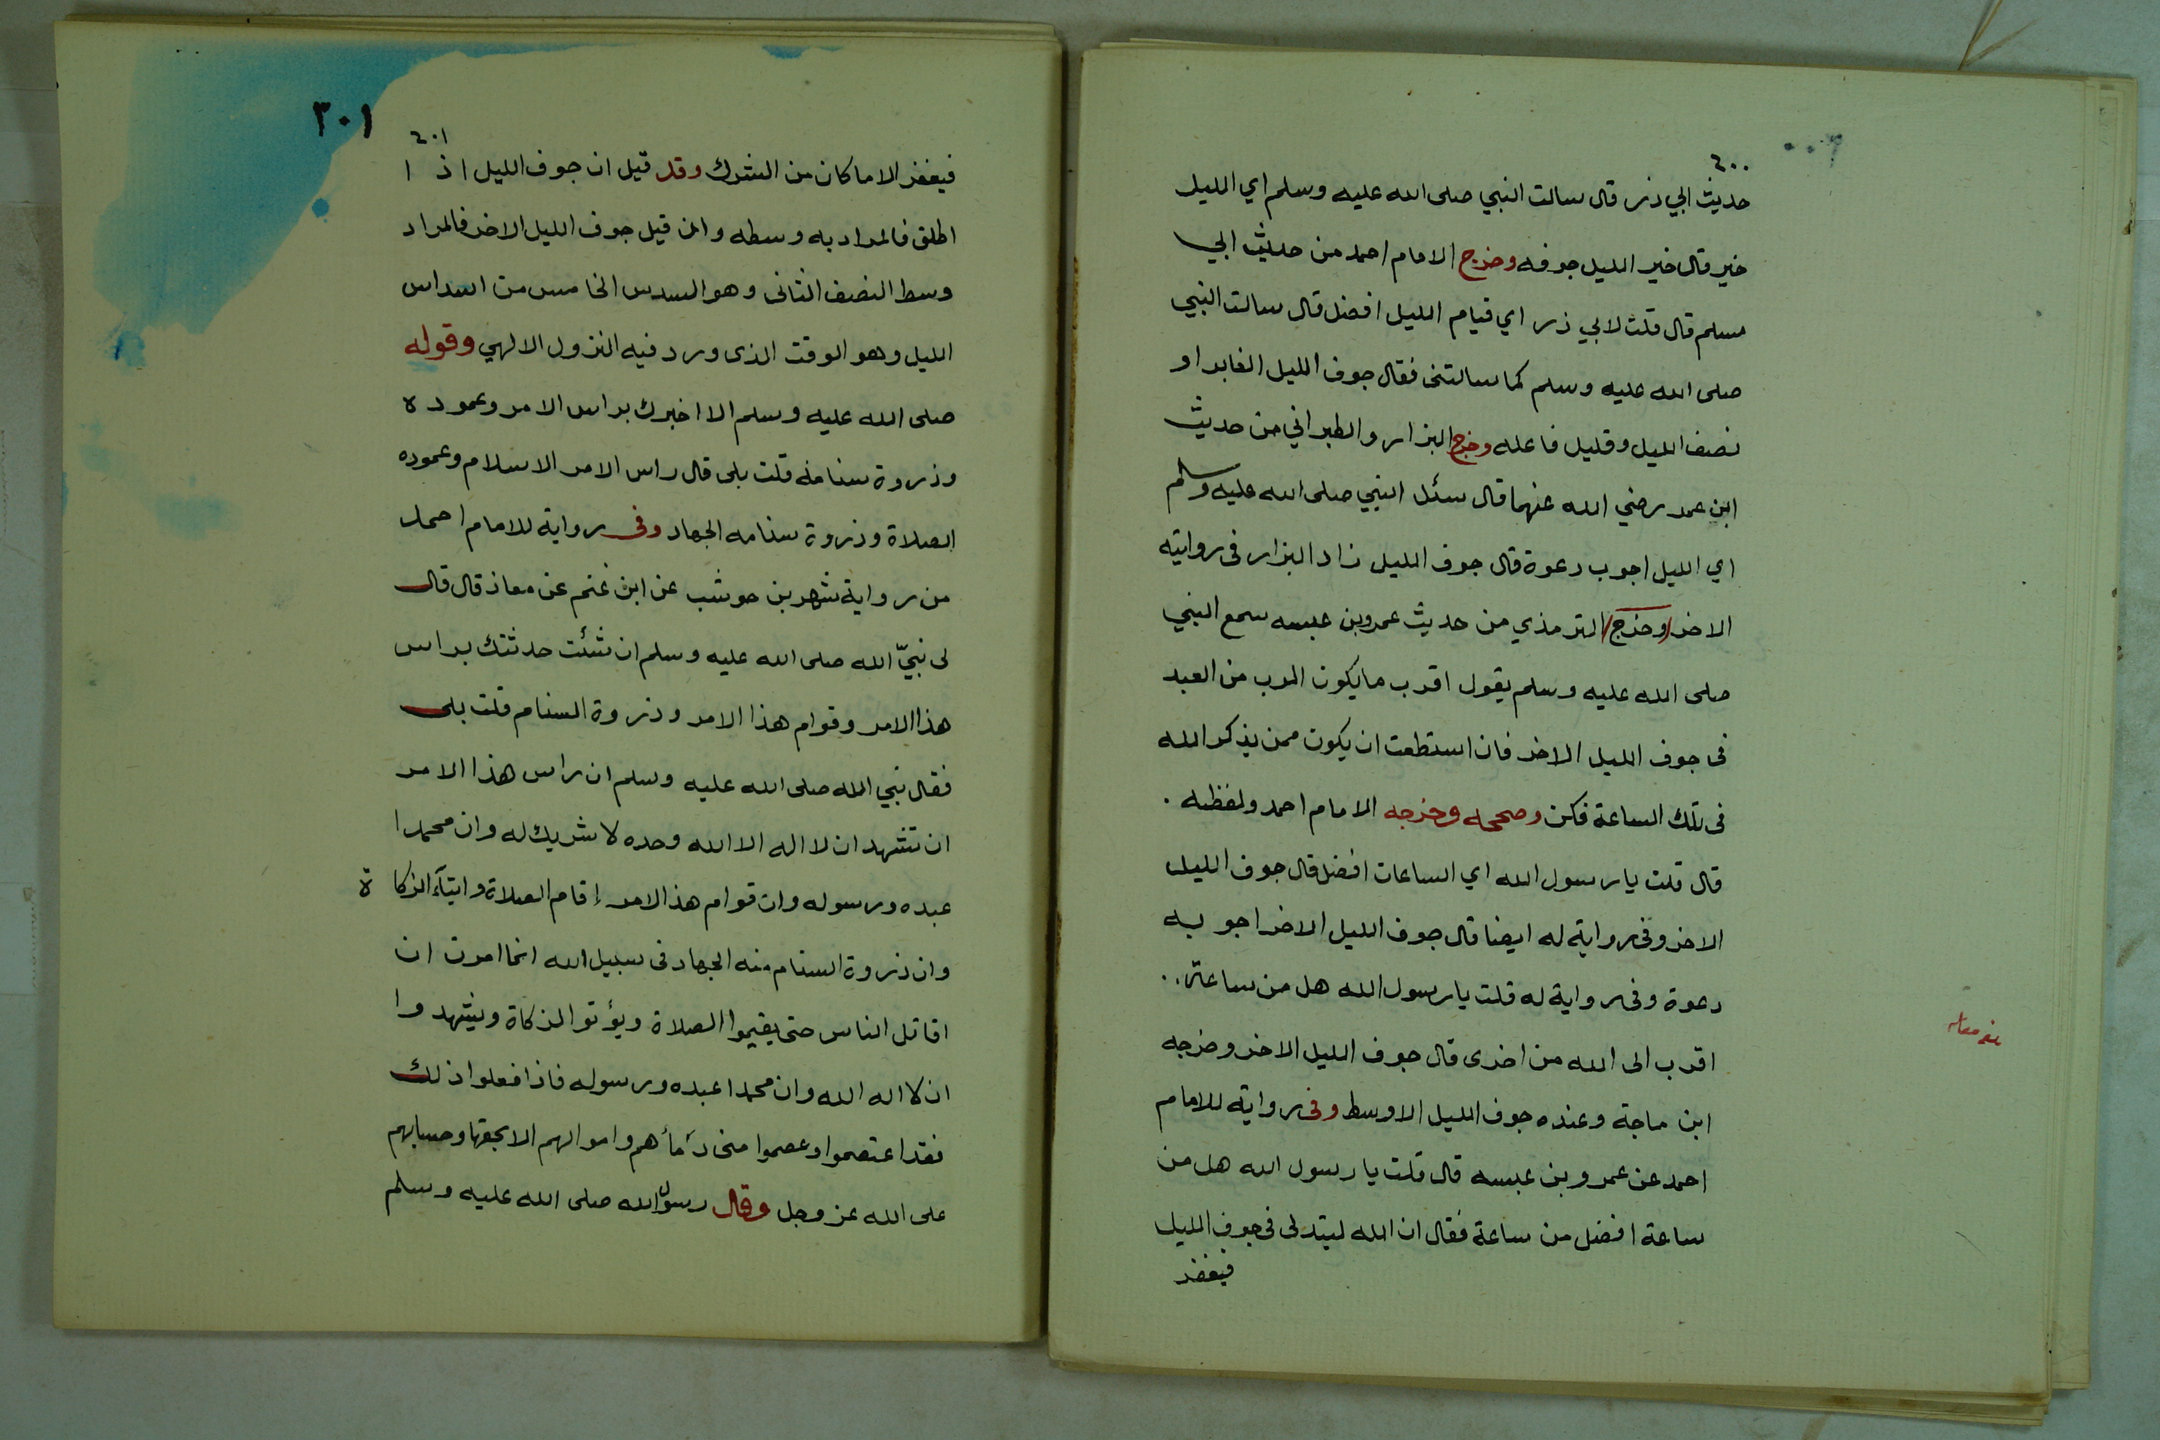 ٤٠٠
حديث ابي ذر قال سالت النبي صلى الله عليه وسلم اي الليل
خير قال خير الليل جوفه وخرج الامام احمد من حديث ابي
مسلم قال قلت لابي ذر اي قيام الليل افضل قال سالت النبي
صلى الله عليه وسلم كما سالتنى فقال جوف الليل الغابر او
نصف الليل وقليل فاعله وخرج البزار والطبراني من حديث
ابن عمر رضي الله عنهما قال سئل النبي صلى الله عليه وسلم
اي الليل اجوب دعوة قال جوف الليل زاد البزار فى روايته
الاخر وخرج الترمذي من حديث عمرو بن عبسه سمع النبي
صلى الله عليه وسلم يقول اقرب ما يكون الرب من العبد
فى جوف الليل الاخر فان استطعت ان يكون ممن يذكر الله
فى تلك الساعة فكن وصححه وخرجه الامام احمد ولفظه .
قال قلت يا رسول الله اي الساعات افضل قال جوف الليل
الاخر وفى رواية له ايضا قال جوف الليل الاخر اجوبه
دعوة وفى رواية له قلت يا رسول الله هل من ساعة ..
اقرب الى الله من اخرى قال جوف الليل الاخر وخرجه
ابن ماجة وعنده جوف الليل الاوسط وفى رواية للامام
احمد عن عمرو بن عبسه قال قلت يا رسول الله هل من
ساعة افضل من ساعة فقال ان الله ليتدلى فى جوف الليل
فيغفر
٣٠١
٤٠١
فيغفر الا ما كان من الشرك وقد قيل ان جوف الليل اذا
اطلق فالمراد به وسطه وان قيل جوف الليل الاخر فالمراد
وسط النصف الثانى وهو السدس الخامس من اسداس
الليل وهو الوقت الذى ورد فيه النزول الالهي وقوله
صلى الله عليه وسلم الا اخبرك براس الامر وعموده
وذروة سنامه قلت بلى قال راس الامر الاسلام وعموده
الصلاة وذروة سنامه الجهاد وفى رواية للامام احمد
من رواية شهر بن حوشب عن ابن غنم عن معاذ قال قال
لى نبيّ الله صلى الله عليه وسلم ان شئت حدثتك براس
هذا الامر وقوام هذا الامر وذروة السنام قلت بلى
فقال نبي الله صلى الله عليه وسلم ان راس هذا الامر
ان تشهد ان لا اله الا الله وحده لا شريك له وان محمدا
عبده ورسوله وان قوام هذ الامر إقام الصلاة وايتآء الزكاة
وان ذروة السنام منه الجهاد فى سبيل الله انما امرت ان
اقاتل الناس حتى يقيموا الصلاة ويؤتوا الزكاة ويشهدوا
ان لا اله الله وان محمدا عبده ورسوله فاذا فعلوا ذلك
فقد اعتصموا وعصموا منى دمأهم واموالهم الا بحقها وحسابهم
على الله عز وجل وقال رسول الله صلى الله عليه وسلم